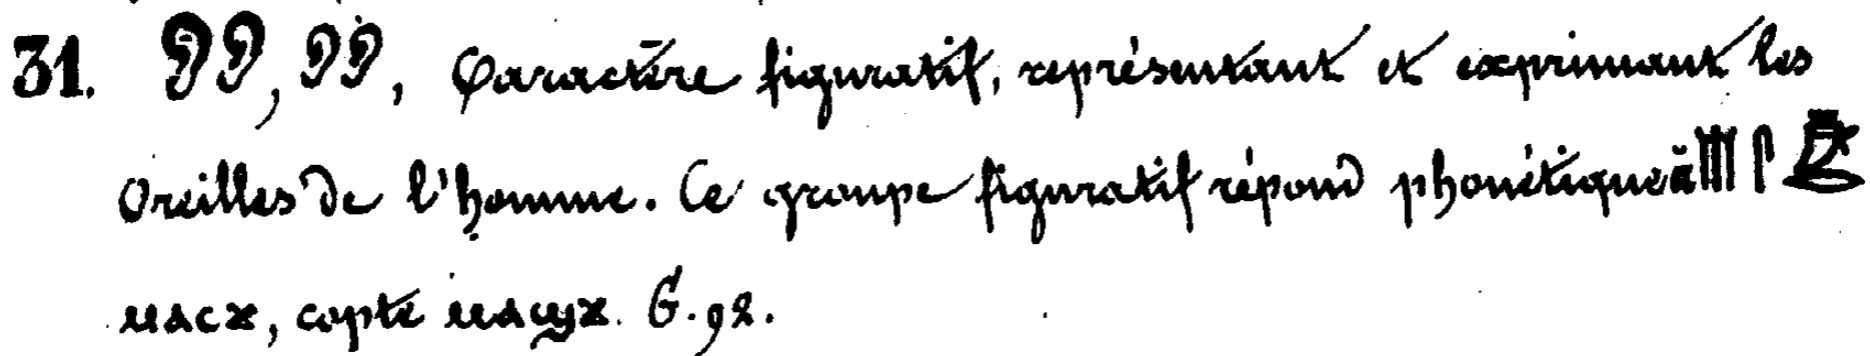 31. 𓂈𓂈, 𓂈𓂈, Caractère figuratif, représentant et exprimant les
Oreilles de l'homme. Ce groupe figuratif répond phonétiq. à
ⲙⲁⲥϫ, copte ⲙⲁϣϫ. G. 92.